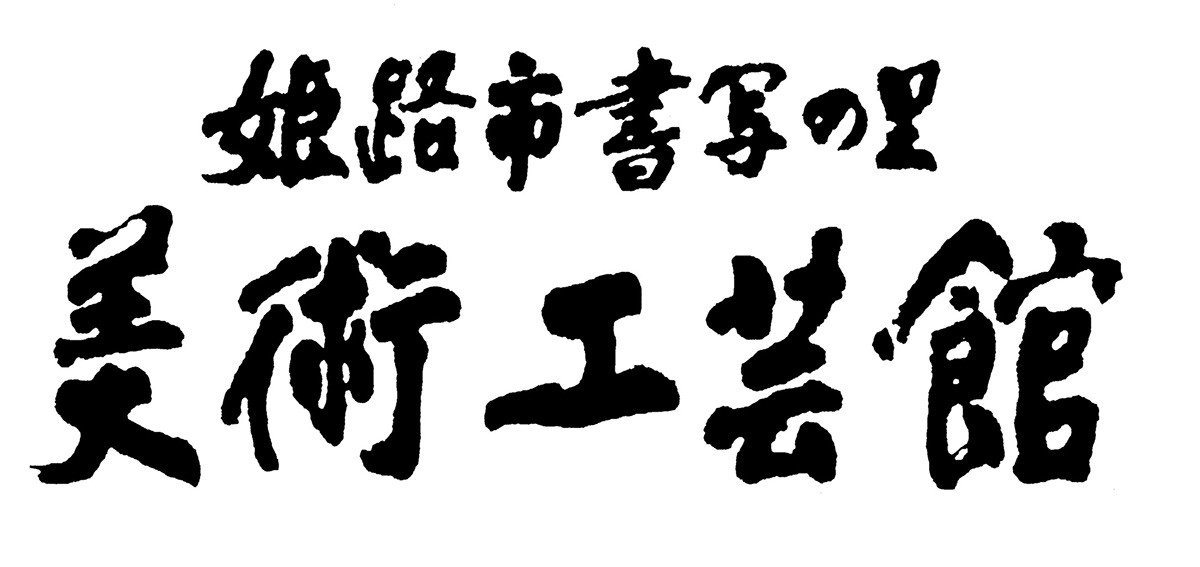 姫路市書写の里
美術工芸館